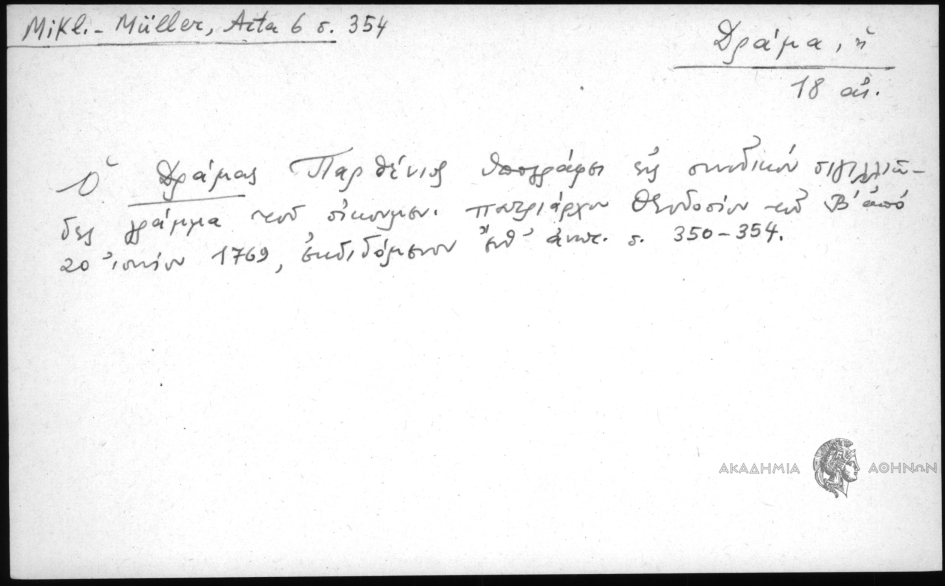 Mikl.- Müller, Acta 6 σ. 354
Δράμα, ἡ
18 αἰ.
Ὁ Δράμας Παρθένιος ὑπογράφει εἰς συνοδικόν σιγιλλιῶ-
δες γράμμα τοῦ οἰκουμεν. πατριάρχου Θεοδοσίου τοῦ Β' ἀπό
20 ἰουνίου 1769, ἐκδιδόμενον ἔνθ' ἀνωτ. σ. 350-354.
ΑΚΑΔΗΜΙΑ ΑΘΗΝΩΝ